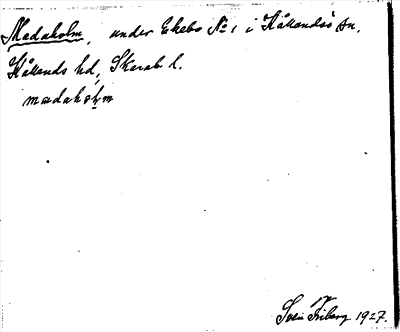 Madaholm, under Ekebo No 1 i Kållandsö sn.
Kållands hd, Skarab. l.
madahoḷm
Sven Friberg 1927.